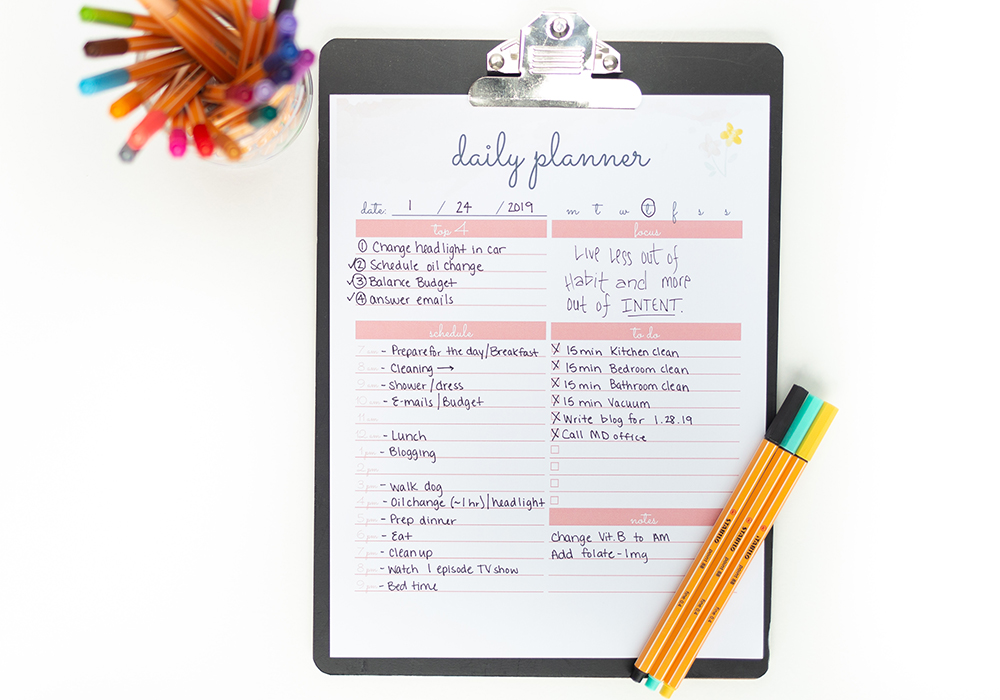 daily planner
date: 1 / 24 / 2019
m t w t f s s
top 4
① Change headlight in car
✓② Schedule oil change
✓③ Balance Budget
✓④ answer emails
focus
Live Less out of
Habit and more
out of INTENT.
schedule
7 am - Prepare for the day/Breakfast
8 am - Cleaning →
9 am - Shower/dress
10 am - E-mails/Budget
11 am
12 pm - Lunch
1 pm - Blogging
2 pm
3 pm - walk dog
4 pm - Oil change (~1 hr)/headlight
5 pm - Prep dinner
6 pm - Eat
7 pm - Clean up
8 pm - Watch 1 episode TV show
9 pm - Bed time
to do
X 15 min Kitchen clean
X 15 min Bedroom clean
X 15 min Bathroom clean
X 15 min Vacuum
X Write blog for 1.28.19
X Call MD office
notes
Change Vit.B to AM
Add folate - 1mg
STABILO point 88 fine 0.4
STABILO point 88 fine 0.4
STABILO point 88 fine 0.4